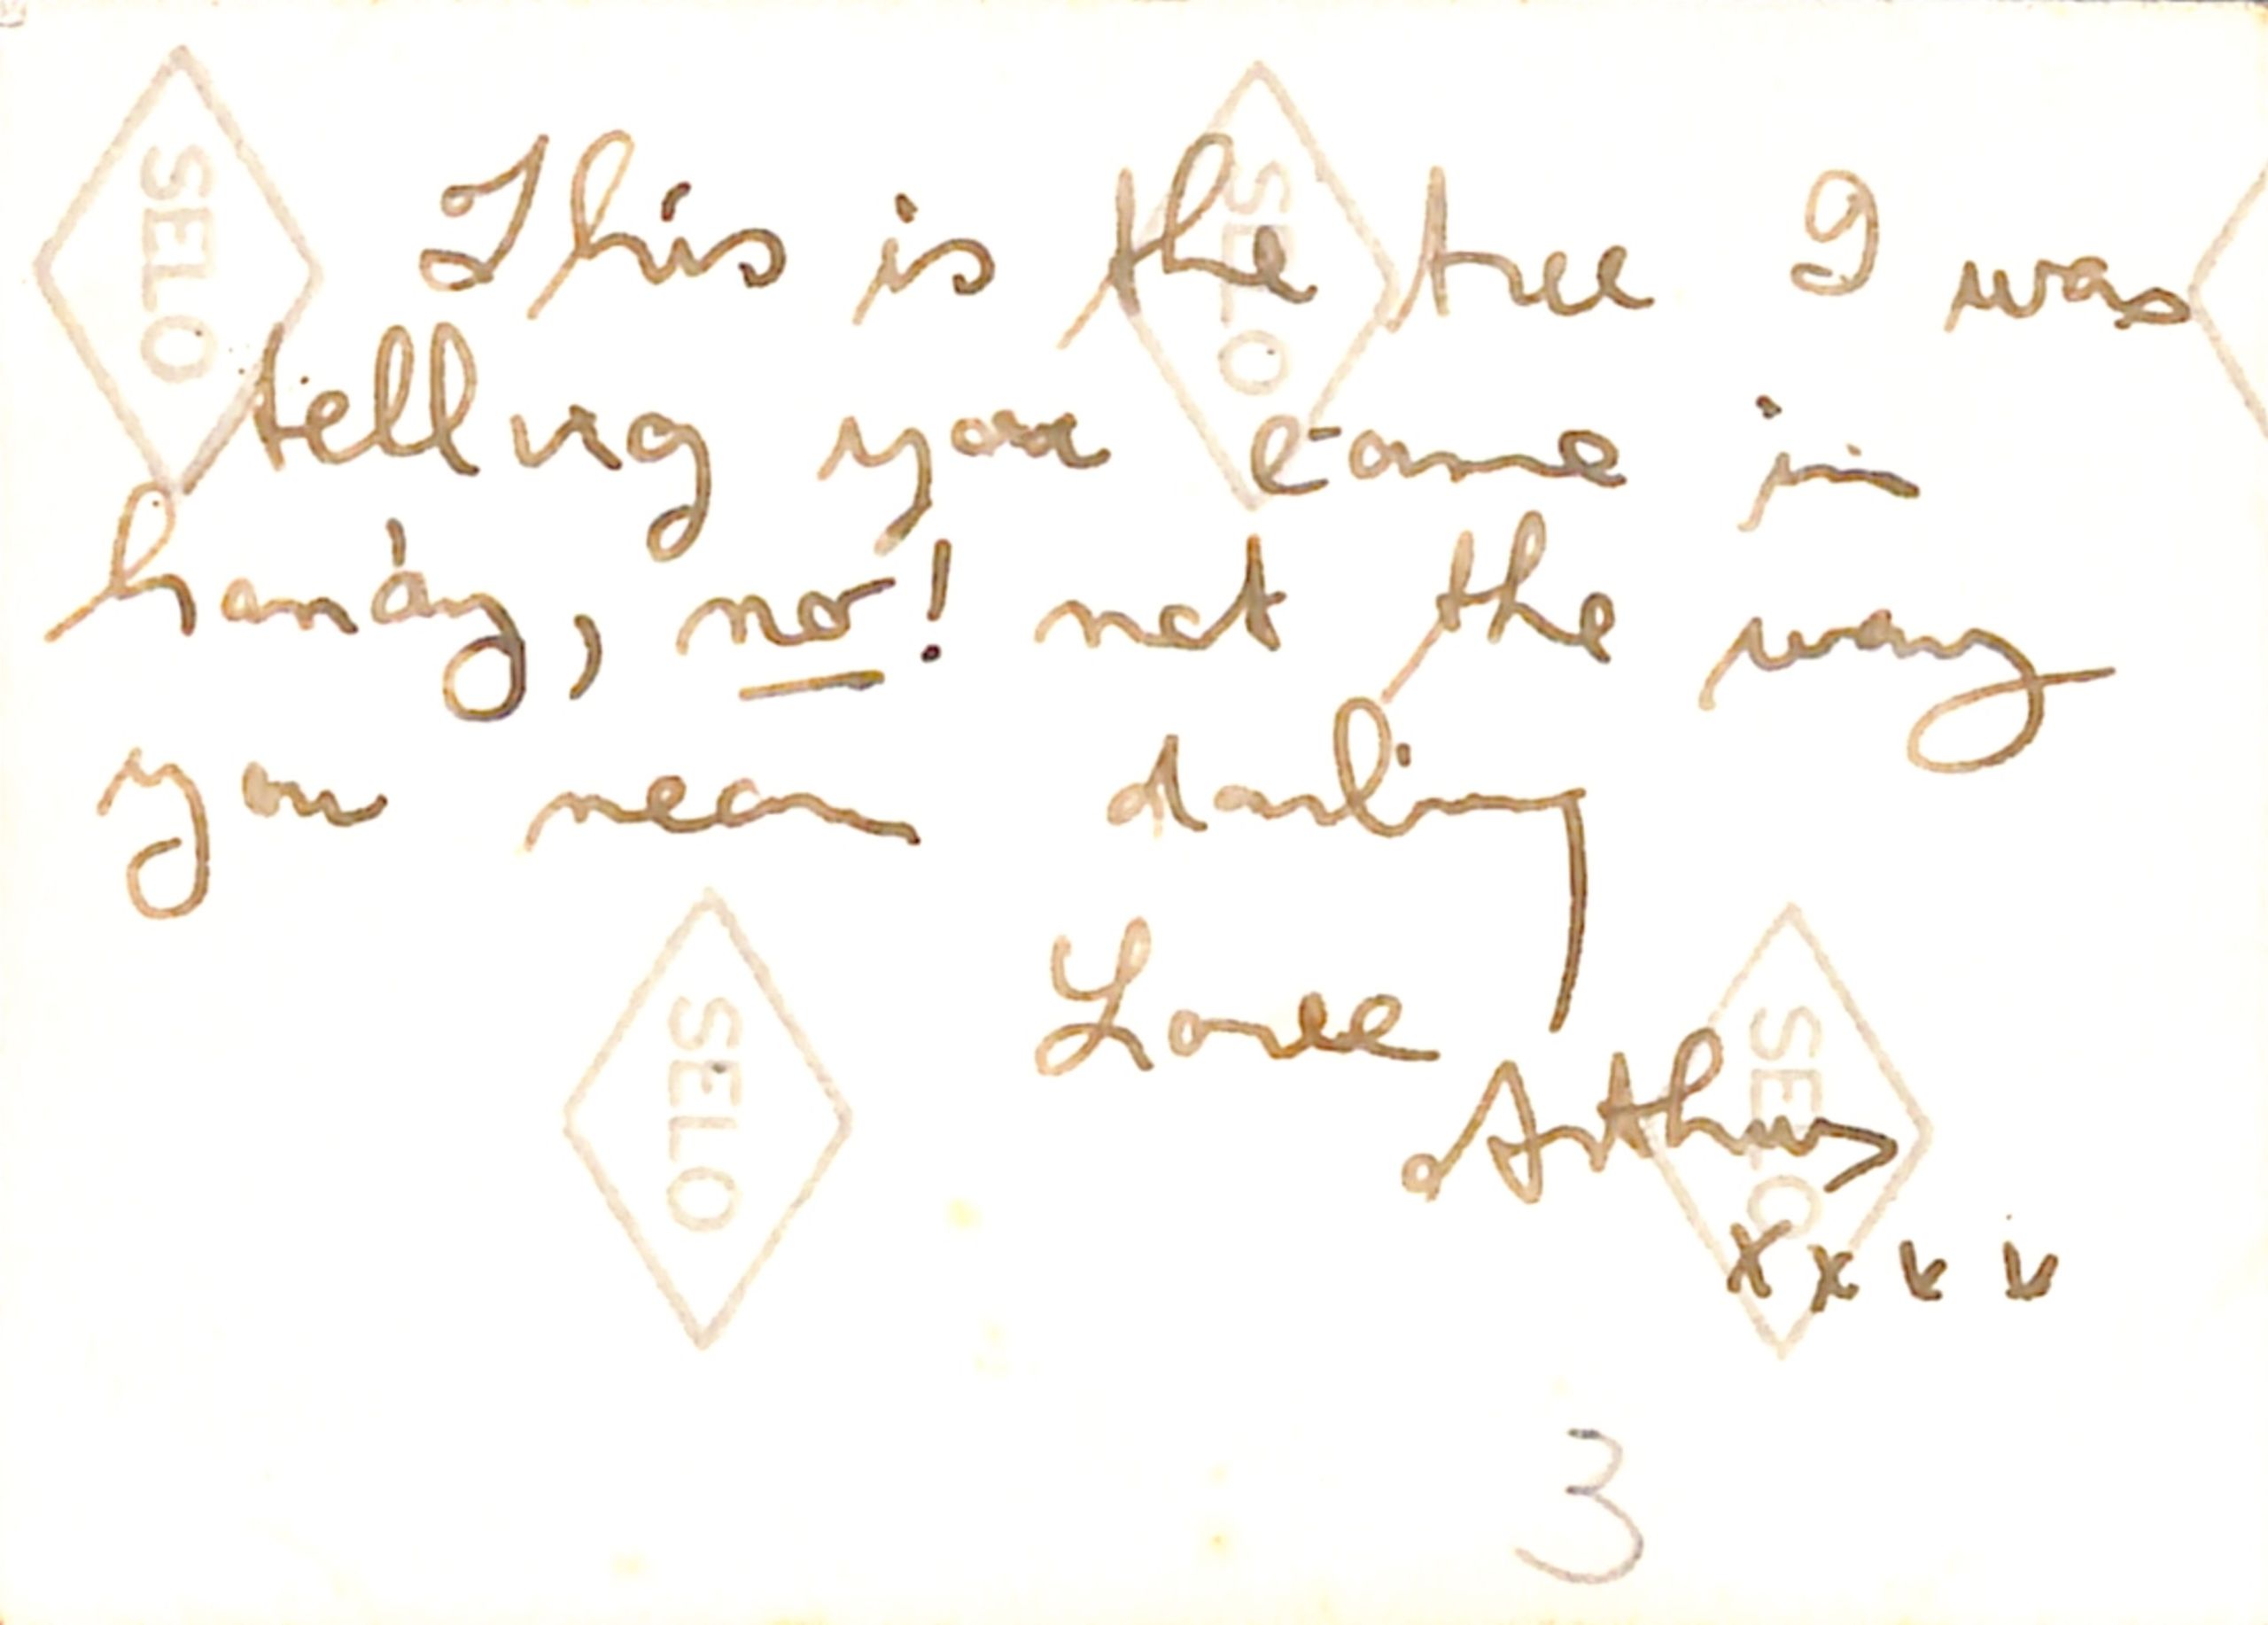 This is the tree I was
telling you came in
handy, no! not the way
you mean darling
Love
Arthur
x x x x
3
SELO
SELO
SELO
SELO